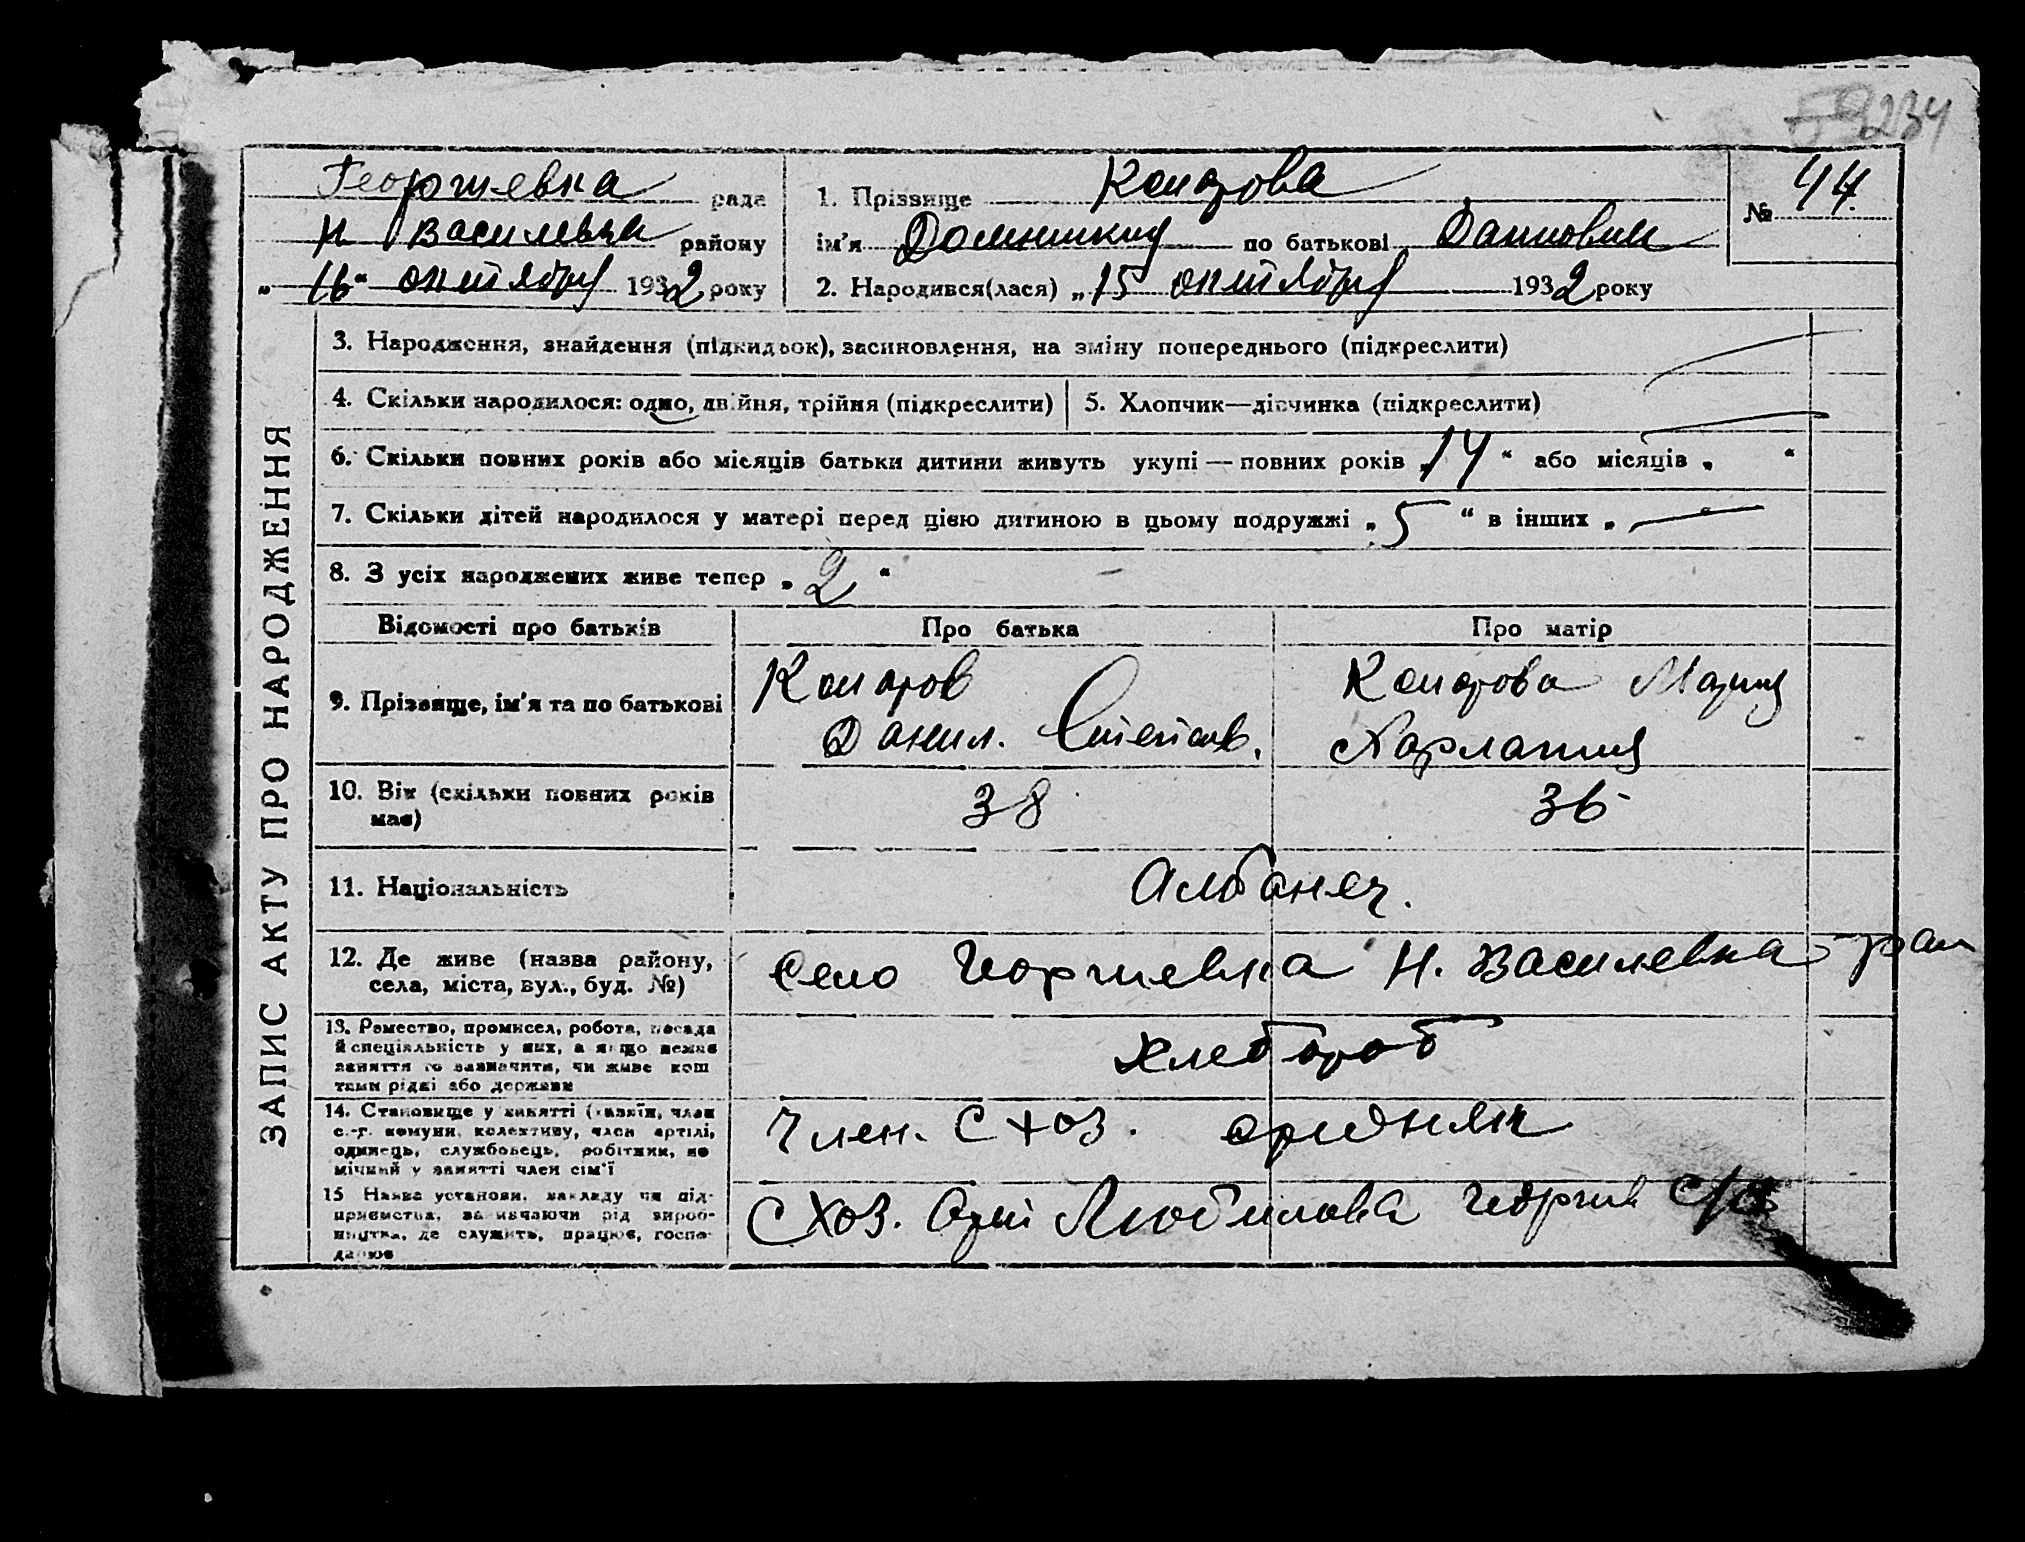 9234
Георгиевка рада
Н Василевка району
„ 16 “ октября 1932 року
1. Прізвище Комрова
ім'я Домникия по батькові Даниловна
2. Народився(лася) „ 15 октября 1932 року
№ 44
ЗАПИС АКТУ ПРО НАРОДЖЕННЯ
3. Народження, знайдення (підкидьок), засиновлення, на зміну попереднього (підкреслити)
4. Скільки народилося: одно, двійня, трійня (підкреслити)
5. Хлопчик—дівчинка (підкреслити)
6. Скільки повних років або місяців батьки дитини живуть укупі — повних років „ 14 “ або місяців „ “
7. Скільки дітей народилося у матері перед цією дитиною в цьому подружжі „ 5 “ в інших „ —
8. З усіх народжених живе тепер „ 2 “
Відомості про батьків Про батька Про матір
9. Прізвище, ім'я та по батькові
Данил. Степанов.
Мария
Харлампия
10. Вік (скільки повних років
має)
38 36
11. Національність Албанец.
12. Де живе (назва району,
села, міста, вул., буд. №)
Село Георгиевка Н. Василевка рай
13. Ремество, промисел, робота, посада
й спеціяльність у них, а якщо немає
заняття то зазначити, чи живе кош
тами рідні або держави
Хлебороб
14. Становище у занятті (хазяїн, член
с.-г. комуни, колективу, член артілі,
одинець, службовець, робітник, по
мічний у занятті член сім'ї
Член. С хоз. средняк
15 Назва установи, закладу чи під-
приємства, зазначаючи рід вироб-
ництва, де служить, працює, госпо-
дарює
С хоз. Арт Любимова Георгив с/с